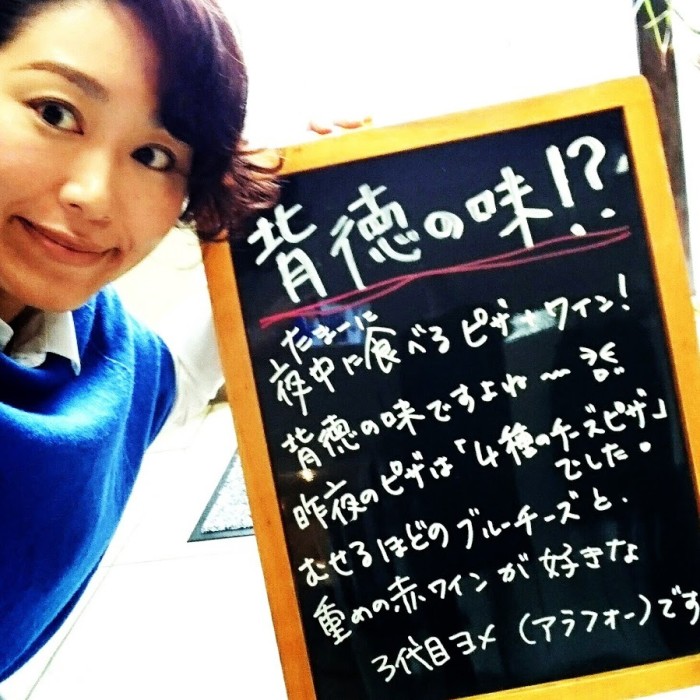 背徳の味!?
たまーに
夜中に食べるピザ+ワイン!
背徳の味ですよね〜
昨夜のピザは「4種のチーズピザ」
でした。
むせるほどのブルーチーズと、
重めの赤ワインが好きな
3代目ヨメ(アラフォー)です